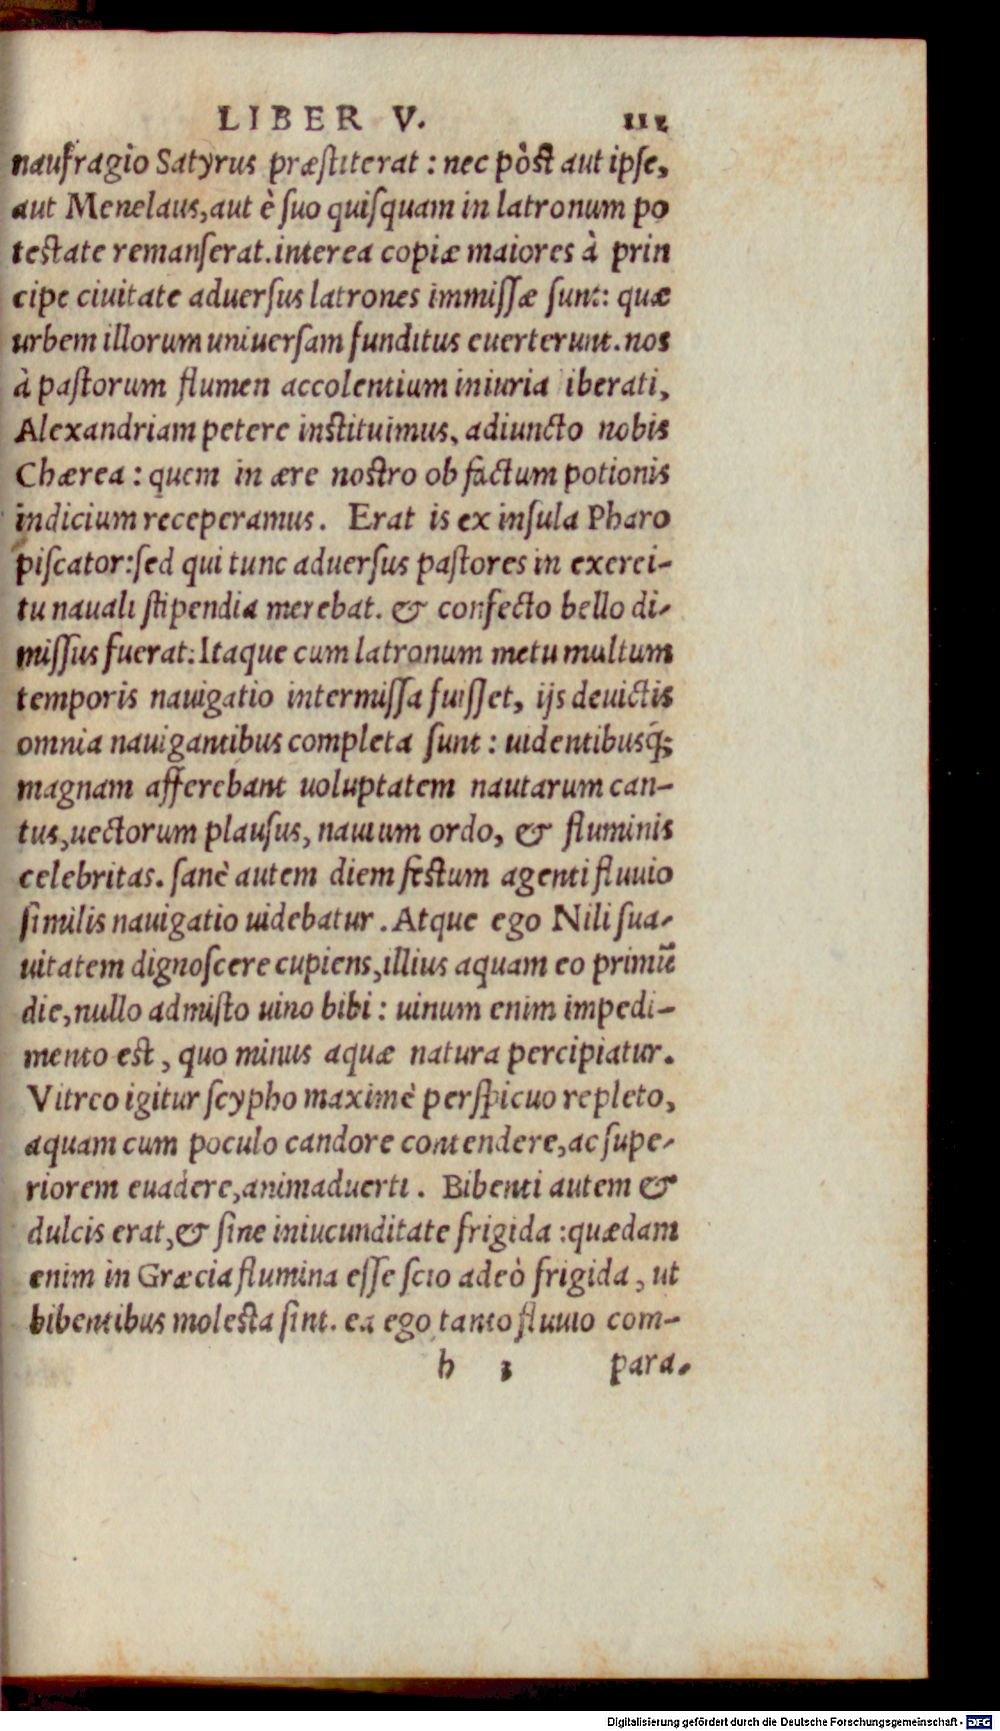 LIBER V. 111
naufragio Satyrus præſtiterat : nec pòst aut ipſe,
aut Menelaus, aut è ſuo quiſquam in latronum po
teſtate remanſerat. interea copiæ maiores à prin
cipe ciuitate aduerſus latrones immiſſæ ſunt: quæ
urbem illorum uniuerſam funditus euerterunt. nos
à paſtorum flumen accolentium iniuria iberati,
Alexandriam petere inſtituimus, adiuncto nobis
Chærea : quem in ære noſtro ob factum potionis
indicium receperamus. Erat is ex inſula Pharo
piſcator: ſed qui tunc aduerſus paſtores in exerci-
tu nauali ſtipendia merebat. & confecto bello di-
miſſus fuerat: Itaque cum latronum metu multum
temporis nauigatio intermiſſa fuiſſet, ijs deuictis
omnia nauigantibus completa ſunt : uidentibusq́;
magnam afferebant uoluptatem nautarum can-
tus, uectorum plauſus, nauium ordo, & fluminis
celebritas. ſanè autem diem feſtum agenti fluuio
ſimilis nauigatio uidebatur. Atque ego Nili ſua-
uitatem dignoſcere cupiens, illius aquam eo primũ
die, nullo admiſto uino bibi : uinum enim impedi-
mento est, quo minus aquæ natura percipiatur.
Vitreo igitur ſcypho maximè perſpicuo repleto,
aquam cum poculo candore contendere, ac ſupe-
riorem euadere, animaduerti. Bibenti autem &
dulcis erat, & ſine iniucunditate frigida : quædam
enim in Græcia flumina eſſe ſcio adeò frigida, ut
bibentibus moleſta ſint. ea ego tanto fluuio com-
h 3 para-
Digitalisierung gefördert durch die Deutsche Forschungsgemeinschaft - DFG